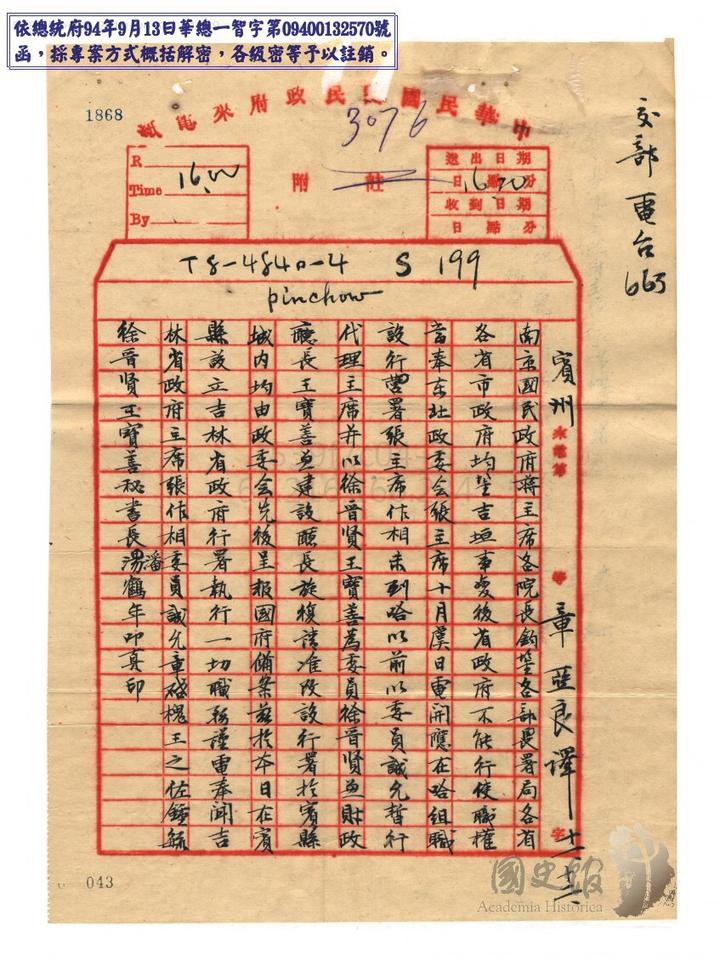 依總統府94年9月13日華總一智字第09400132570號
函，採專案方式概括解密，各級密等予以註銷。
1868
中華民國國民政府來電紙
3076
交部電台
663
R
Time 16.00
By
附註
送出日期
日 16.20 分
收到日期
日點分
T8-4840-4 S 199
pinchow
賓州 來電第 等 章亞良譯 字 十一 十三
南京國民政府蔣主席各院長鈞鑒各部畏署局各省
各省市政府均鑒吉垣事變後省政府不能行使職權
當奉東北政委會張主席十月虞日電開應在哈組職
設行署張主席作相未到哈以前以委員誠允暫行
代理主席并以徐晋賢王寶善為委員徐晋賢兼財政
廳長王寶善兼建設廳長旋復請准改設行署於賓縣
城内均由政委會先後呈報國府備案茲於本日在賓
縣設立吉林省政府行署執行一切職務謹電奉聞吉
林省政府主席張作相委員誠允章啟槐王之佐鍾毓
徐晋賢王寶善秘書長湯潘鶴年叩真印
043
國史館
Academia Historica